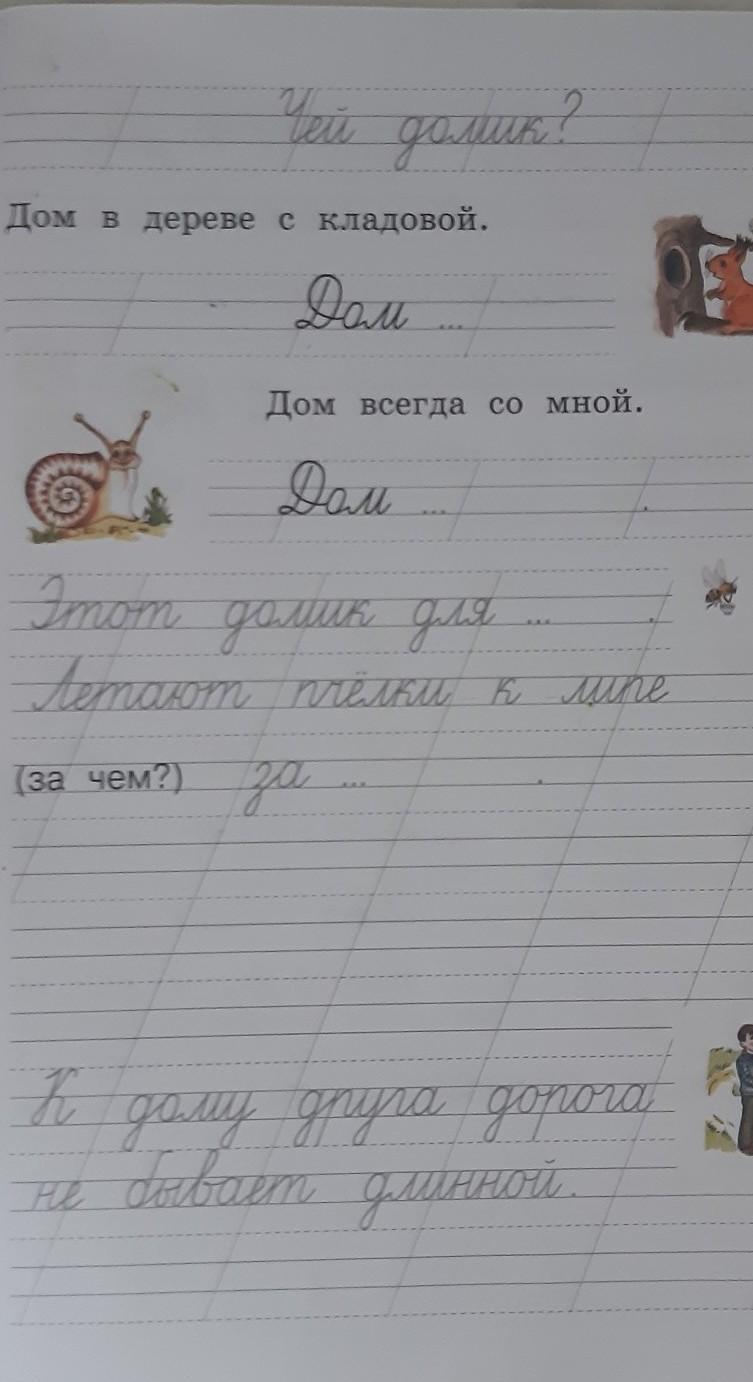 Чей домик?
Дом в дереве с кладовой.
Дом ...
Дом всегда со мной.
Дом ... .
Этот домик для ... .
Летают пчёлки к липе
(за чем?) за ... .
К дому друга дорога
не бывает длинной.